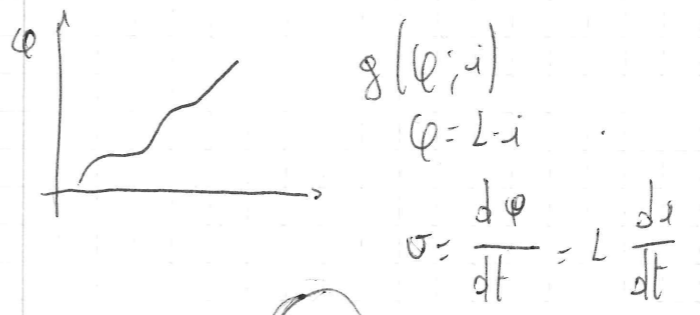 φ
g(φ;i)
φ=L·i
v= dφ/dt = L di/dt